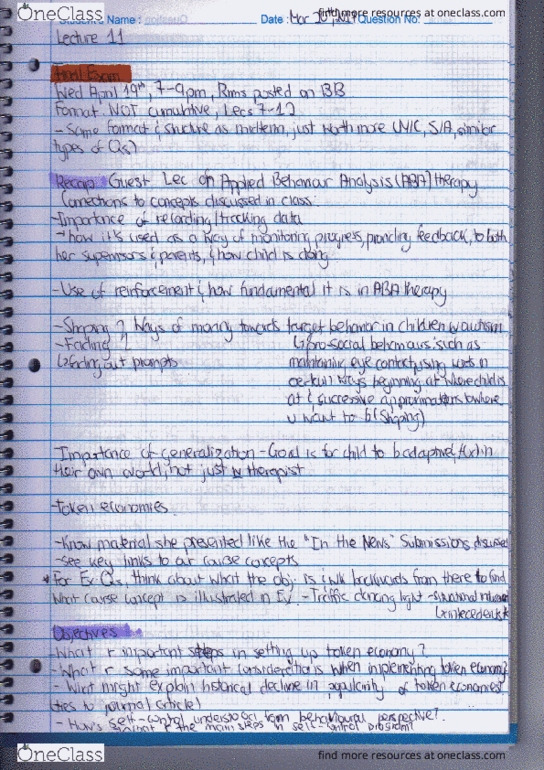 OneClass
find more resources at oneclass.com
Student's Name :
Date : Mar
Question No:
Lecture 11
Final Exam
Wed April 19th, 7-9pm, Rms posted on BB
Format NOT cumulative, Lecs 7-12
- Same format & structure as midterm, just worth more (M/C, S/A, similar
types of Qs)
Recap: Guest Lec on Applied Behaviour Analysis (ABA) therapy
Connections to concepts discussed in class:
- Importance of recording/tracking data
- how it's used as a key of monitoring progress, providing feedback, to both
her supervisors & parents, & how child is doing
- Use of reinforcement & how fundamental it is in ABA therapy
- Shaping } Ways of moving towards target behavior in children w autism
- Fading }
↳ pro-social behaviours such as
↳ fading out prompts
maintaining eye contact, using words in
certain ways beginning at where child is
at & successive approximations to where
u want to b (Shaping)
Importance of generalization - Goal is for child to b adaptive, in
their own world, not just w therapist
- Token economies
- Know material she presented like the "In the News" Submissions discussed
- see key links to our course concepts
* For Ex Qs, think about what the obj. is & wk backwards from there to find
what course concept is illustrated in Ex - Traffic light -
↳ antecedents
Objectives
- What r important steps in setting up token economy?
- What r some important considerations when implementing token economy?
- What might explain historical decline in popularity of token economies?
(ties to journal article)
- How's self-control understood from behavioural perspective?
- What r the main steps in self-control program?
OneClass
find more resources at oneclass.com